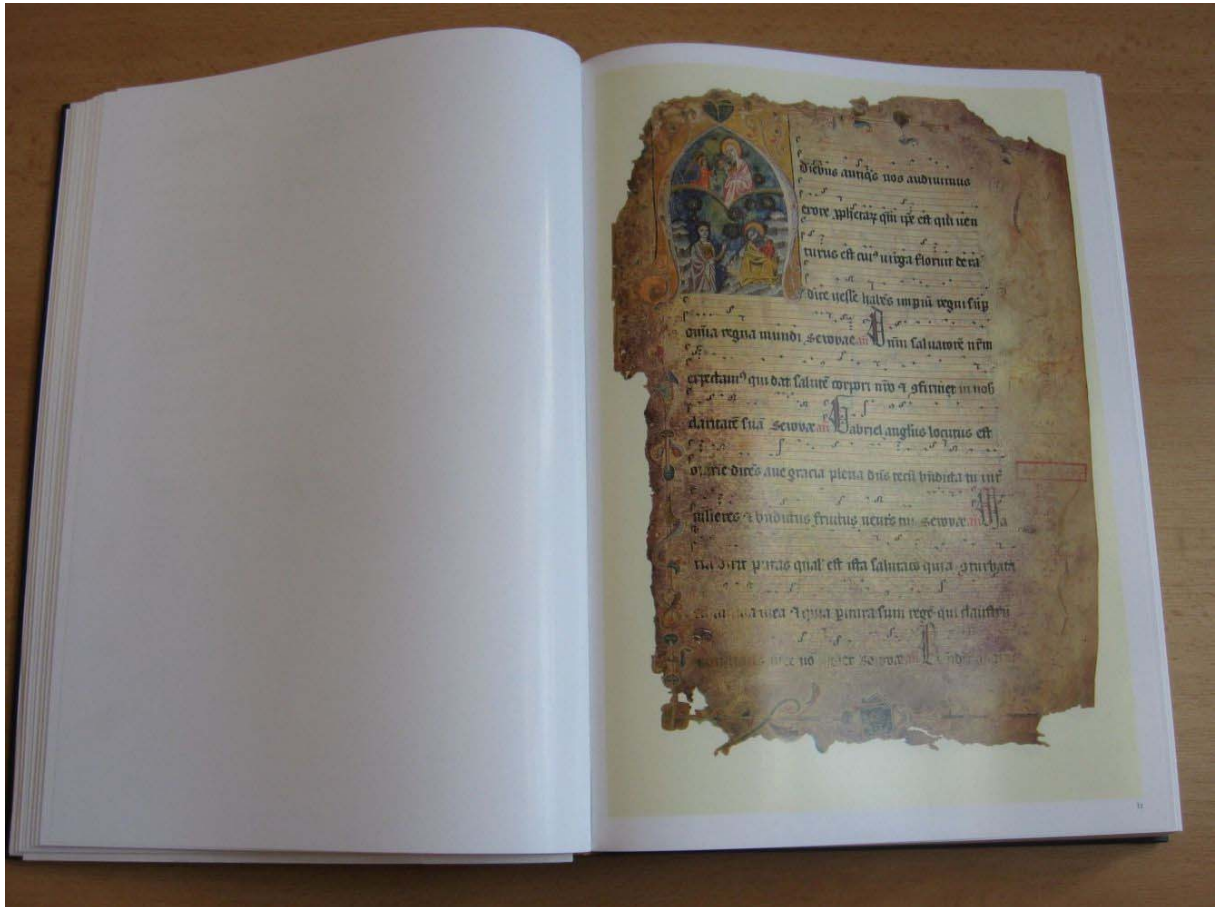 diebus antiqs nos audivimus
exore ꝓphetaꝝ qm ipe est qui uen
turus est cuiꝰ uirga floruit de ra
dice yesse habēs impiū regni suꝑ
omīa regna mundi seuouae an Dnm saluatorē nrm
expectamꝰ qui dat salutē corpori nro ⁊ ꝯfirmet in nob
claritatē suā seuouae an Gabriel angelus locutus est
marie dicēs aue gracia plena dns tecū bndicta tu int
mulieres ⁊ bndictus fructus uentris tui seuouae an Ma
ria dixit putas qual est ista salutacō quia ꝯturbata
mea ⁊ quia paritura sum regē qui claustrū
seuouae an